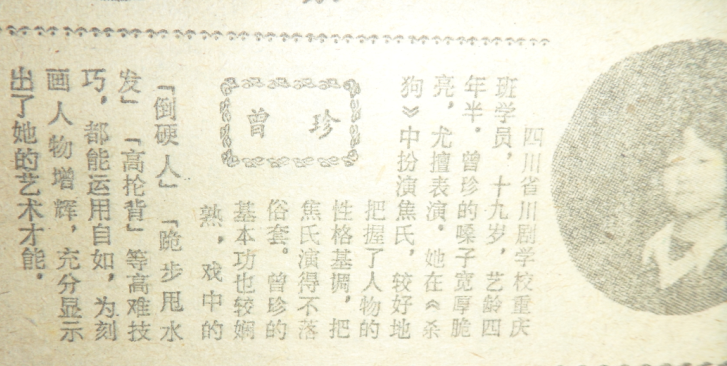 曾珍
四川省川剧学校重庆
班学员，十九岁，艺龄四
年半。曾珍的嗓子宽厚脆
亮，尤擅表演。她在《杀
狗》中扮演焦氏，较好地
把握了人物的
性格基调，把
焦氏演得不落
俗套。曾珍的
基本功也较娴
熟，戏中的
「倒硬人」「跪步甩水
发」「高抡背」等高难技
巧，都能运用自如，为刻
画人物增辉，充分显示
出了她的艺术才能。